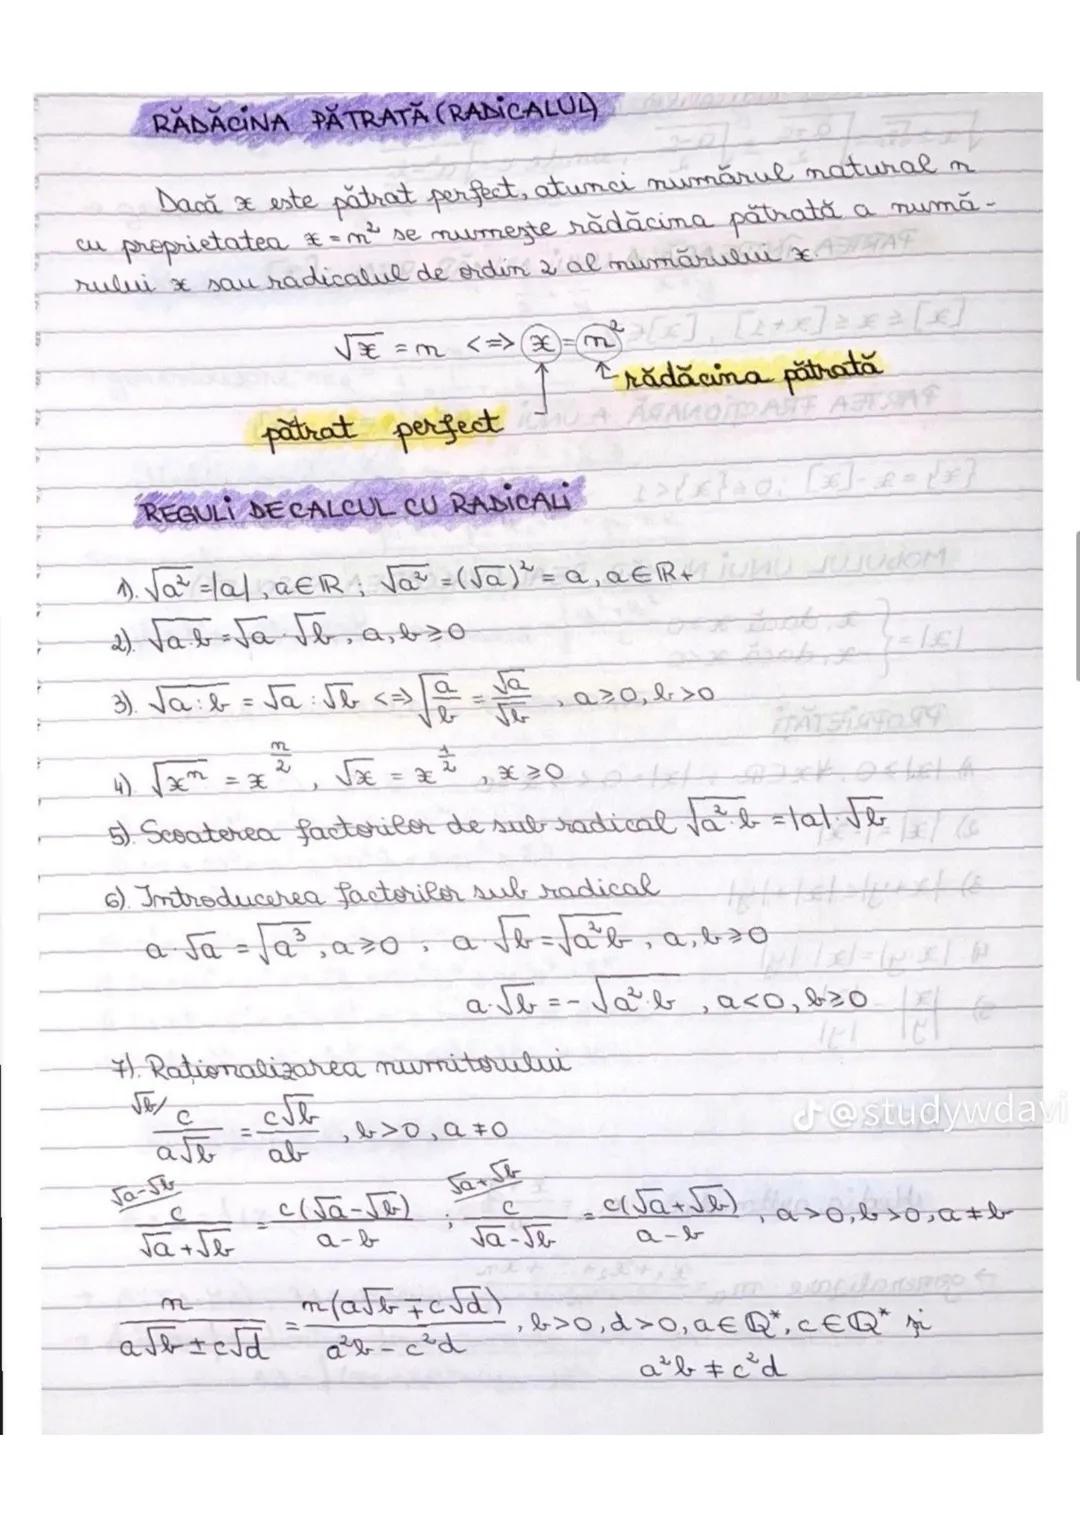 RĂDĂCINA PĂTRATĂ (RADICALUL)
Dacă x este pătrat perfect, atunci numărul natural n
cu proprietatea x = n² se numește rădăcina pătrată a numă-
rului x sau radicalul de ordin 2 al numărului x.
√x = n <=> x = n²
rădăcina pătrată
pătrat perfect
REGULI DE CALCUL CU RADICALI
1). √a² = |a|, a∈ℝ ; √a² = (√a)² = a, a∈ℝ+
2). √a·b = √a · √b, a, b ≥ 0
3). √a:b = √a : √b <=> √(a/b) = √a/√b, a ≥ 0, b > 0
4). √xⁿ = x^(n/2), √x = x^(1/2), x ≥ 0
5). Scoaterea factorilor de sub radical √a²·b = |a|·√b
6). Introducerea factorilor sub radical
a·√a = √a³, a ≥ 0, a·√b = √a²b, a, b ≥ 0
a·√b = -√a²·b, a < 0, b ≥ 0
7). Raționalizarea numitorului
√b/ c/(a√b) = c√b/(ab), b > 0, a ≠ 0
√a-√b/ c/(√a+√b) = c(√a-√b)/(a-b) ; √a+√b/ c/(√a-√b) = c(√a+√b)/(a-b), a > 0, b > 0, a ≠ b
n/(a√b ± c√d) = n(a√b ∓ c√d)/(a²b - c²d), b > 0, d > 0, a∈ℚ*, c∈ℚ* și
a²b ≠ c²d
@studywdavi